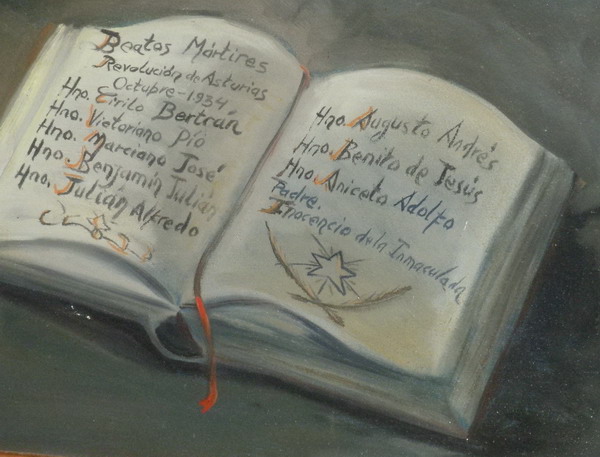 Beatos Mártires
Revolución de Asturias
Octubre-1934
Hno. Cirilo Bertrán
Hno. Victoriano Pío
Hno. Marciano José
Hno. Benjamín Julián
Hno. Julián Alfredo
Hno. Augusto Andrés
Hno. Benito de Jesús
Hno Aniceto Adolfo
Padre.
Inocencio de la Inmaculada